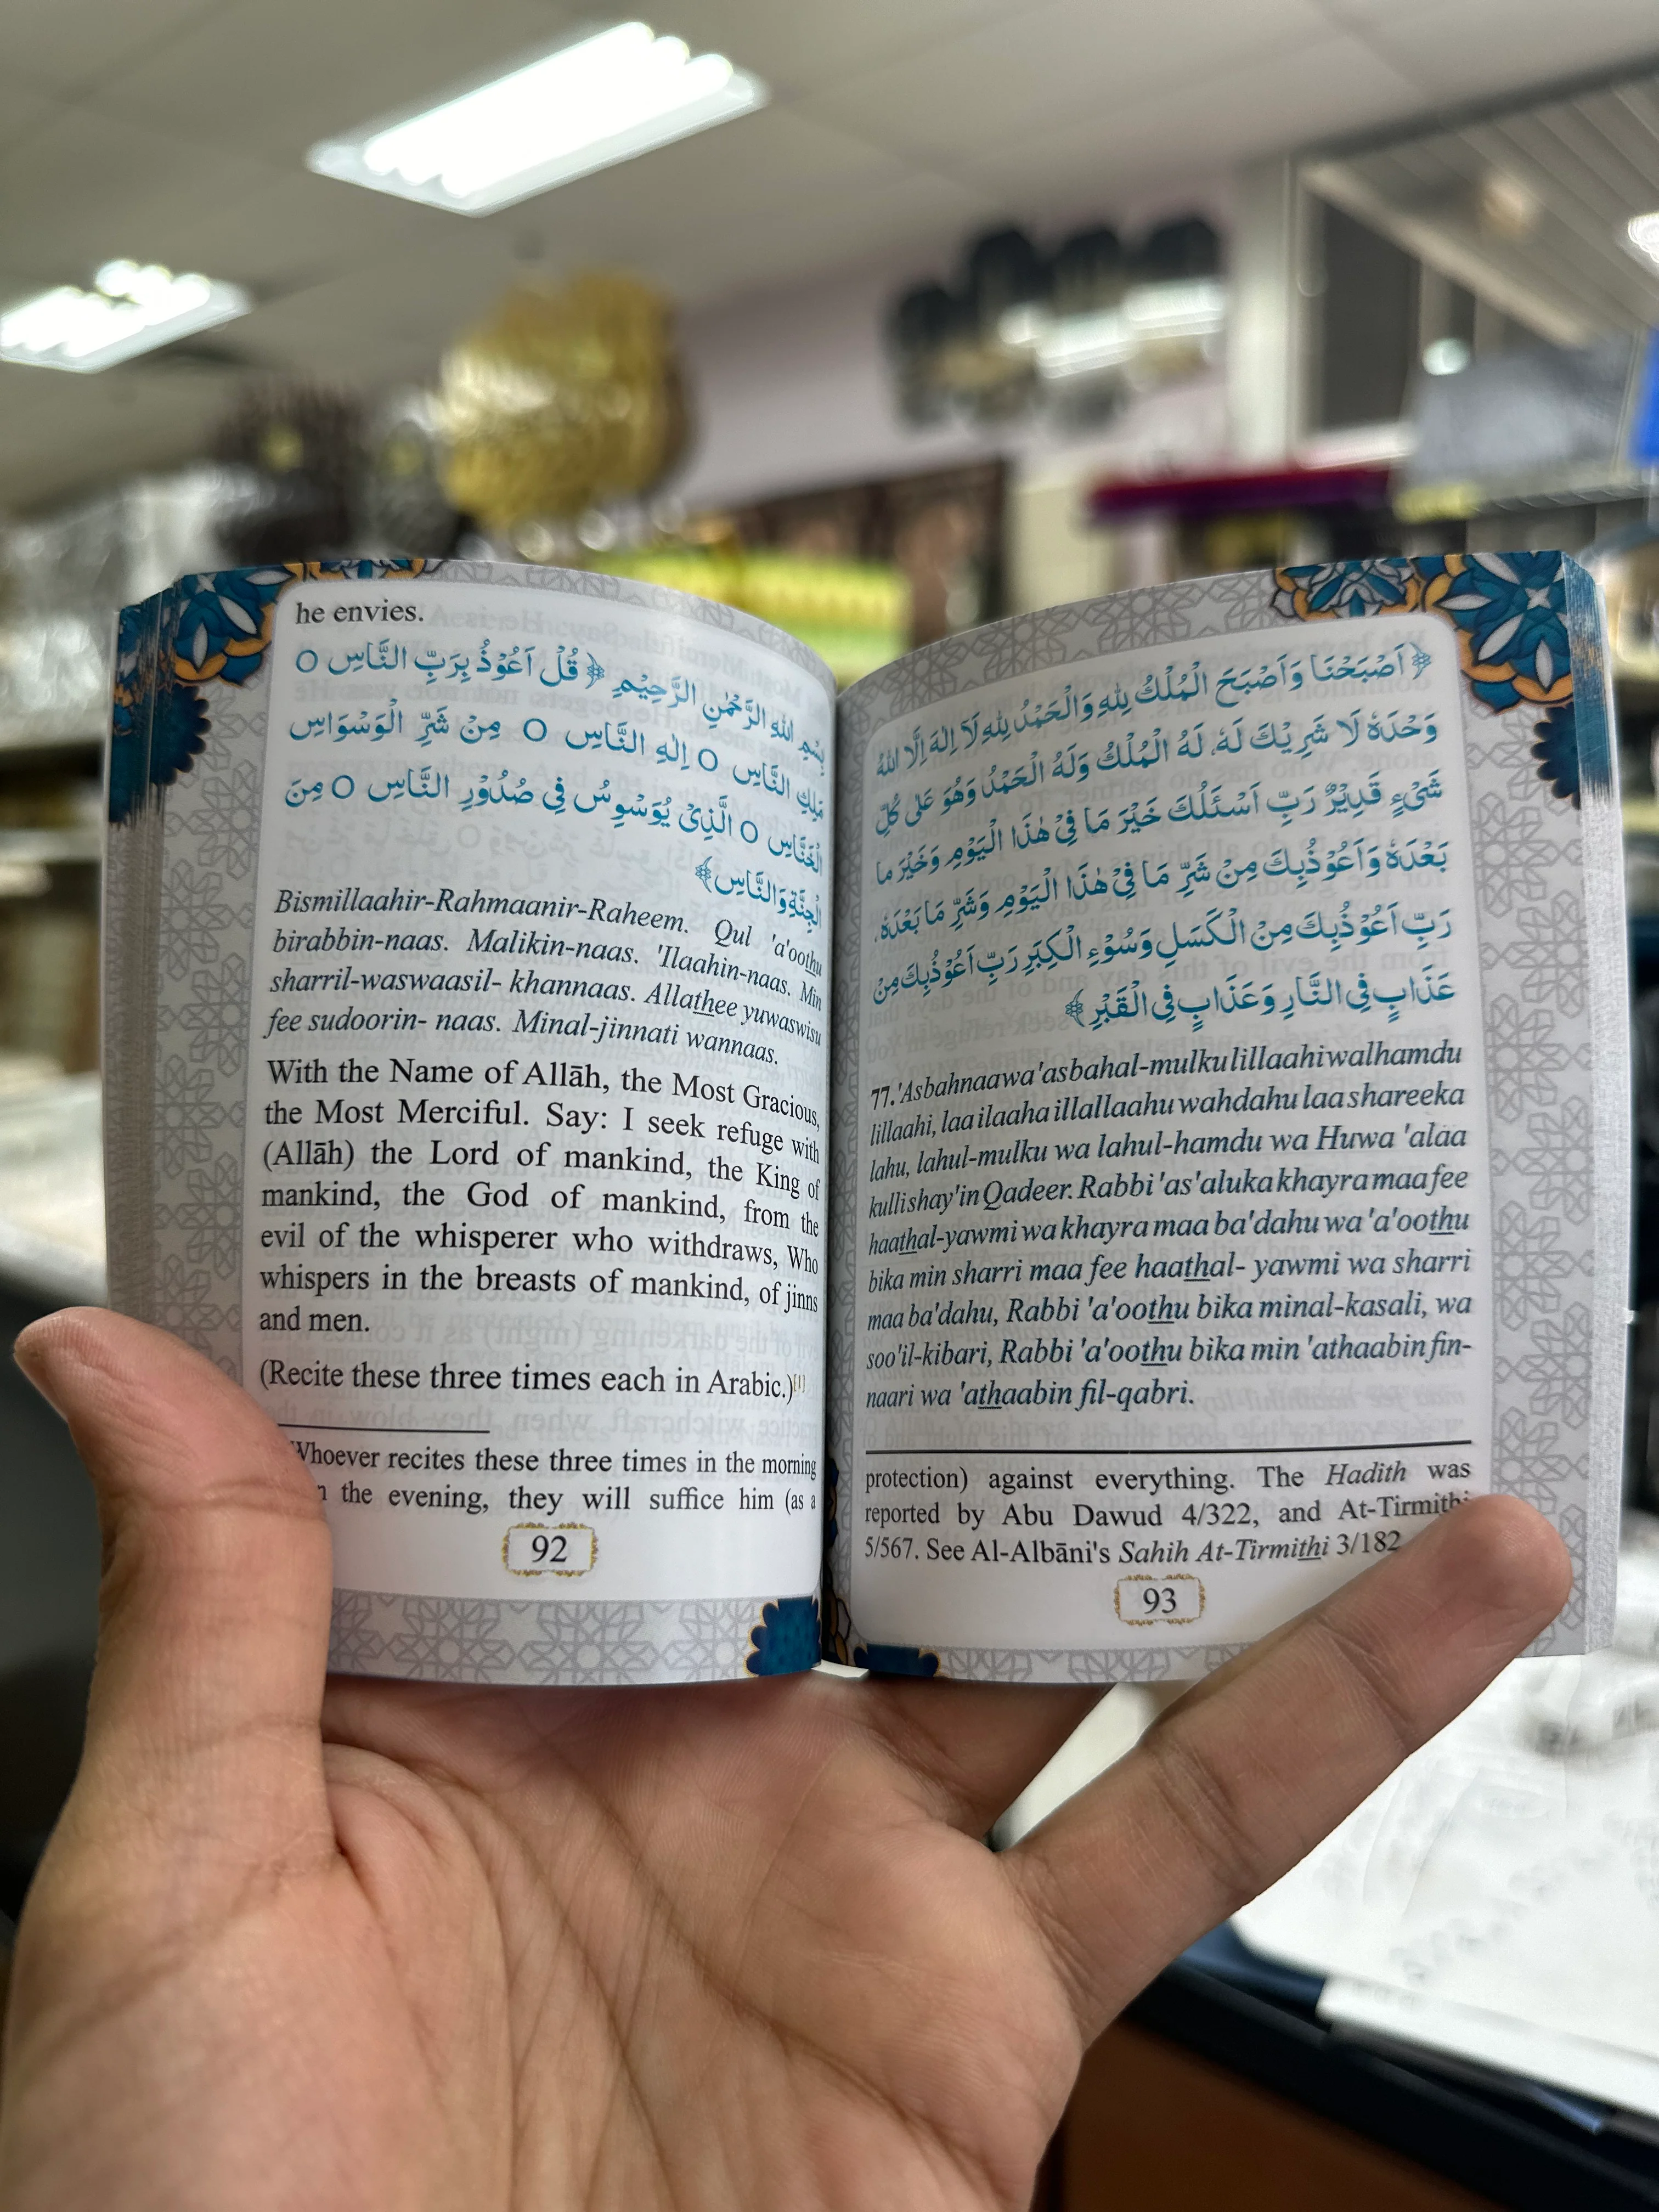 he envies.
بِسْمِ اللهِ الرَّحْمٰنِ الرَّحِيْمِ ﴿قُلْ اَعُوْذُ بِرَبِّ النَّاسِ ○
مَلِكِ النَّاسِ ○ اِلٰهِ النَّاسِ ○ مِنْ شَرِّ الْوَسْوَاسِ
الْخَنَّاسِ ○ الَّذِىْ يُوَسْوِسُ فِى صُدُوْرِ النَّاسِ ○ مِنَ
الْجِنَّةِ وَالنَّاسِ﴾
Bismillaahir-Rahmaanir-Raheem. Qul 'a'oothu
birabbin-naas. Malikin-naas. 'Ilaahin-naas. Min
sharril-waswaasil- khannaas. Allathee yuwaswisu
fee sudoorin- naas. Minal-jinnati wannaas.
With the Name of Allāh, the Most Gracious,
the Most Merciful. Say: I seek refuge with
(Allāh) the Lord of mankind, the King of
mankind, the God of mankind, from the
evil of the whisperer who withdraws, Who
whispers in the breasts of mankind, of jinns
and men.
(Recite these three times each in Arabic.)[1]
Whoever recites these three times in the morning
the evening, they will suffice him (as a
92
﴿اَصْبَحْنَا وَاَصْبَحَ الْمُلْكُ لِلّٰهِ وَالْحَمْدُ لِلّٰهِ لَا اِلٰهَ اِلَّا اللهُ
وَحْدَهٗ لَا شَرِيْكَ لَهٗ، لَهُ الْمُلْكُ وَلَهُ الْحَمْدُ وَهُوَ عَلٰى كُلِّ
شَىْءٍ قَدِيْرٌ رَبِّ اَسْئَلُكَ خَيْرَ مَا فِىْ هٰذَا الْيَوْمِ وَخَيْرَ مَا
بَعْدَهٗ وَاَعُوْذُبِكَ مِنْ شَرِّ مَا فِىْ هٰذَا الْيَوْمِ وَشَرِّ مَا بَعْدَهٗ،
رَبِّ اَعُوْذُبِكَ مِنْ الْكَسَلِ وَسُوْءِ الْكِبَرِ رَبِّ اَعُوْذُبِكَ مِنْ
عَذَابٍ فِى النَّارِ وَعَذَابٍ فِى الْقَبْرِ﴾
77. 'Asbahnaa wa 'asbahal-mulku lillaahi walhamdu
lillaahi, laa ilaaha illallaahu wahdahu laa shareeka
lahu, lahul-mulku wa lahul-hamdu wa Huwa 'alaa
kulli shay'in Qadeer. Rabbi 'as'aluka khayra maa fee
haathal-yawmi wa khayra maa ba'dahu wa 'a'oothu
bika min sharri maa fee haathal- yawmi wa sharri
maa ba'dahu, Rabbi 'a'oothu bika minal-kasali, wa
soo'il-kibari, Rabbi 'a'oothu bika min 'athaabin fin-
naari wa 'athaabin fil-qabri.
protection) against everything. The Hadith was
reported by Abu Dawud 4/322, and At-Tirmithi
5/567. See Al-Albāni's Sahih At-Tirmithi 3/182
93